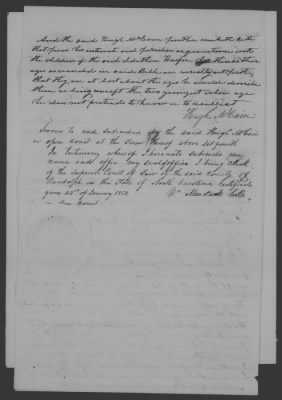 And the said Hugh McCain further saith that
that from his intimate and familiar acquaintance with
the children of the said Jedethan Harper he thinks their
ages as recorded in said Bible are correctly set forth
that they are at least about the age he would consider
them as being except the two youngest whose age
he does not pretend to know or to recollect
Hugh McCain
Sworn to and subscribed by the said Hugh McCain
in open court at the term thereof above set forth
In testimony whereof I hereunto subscribe my
name and affix my seal of office I being clerk
of the Superior Court of Law of the said County of
Randolph in the State of North Carolina
given 22nd of January 1852
in Court